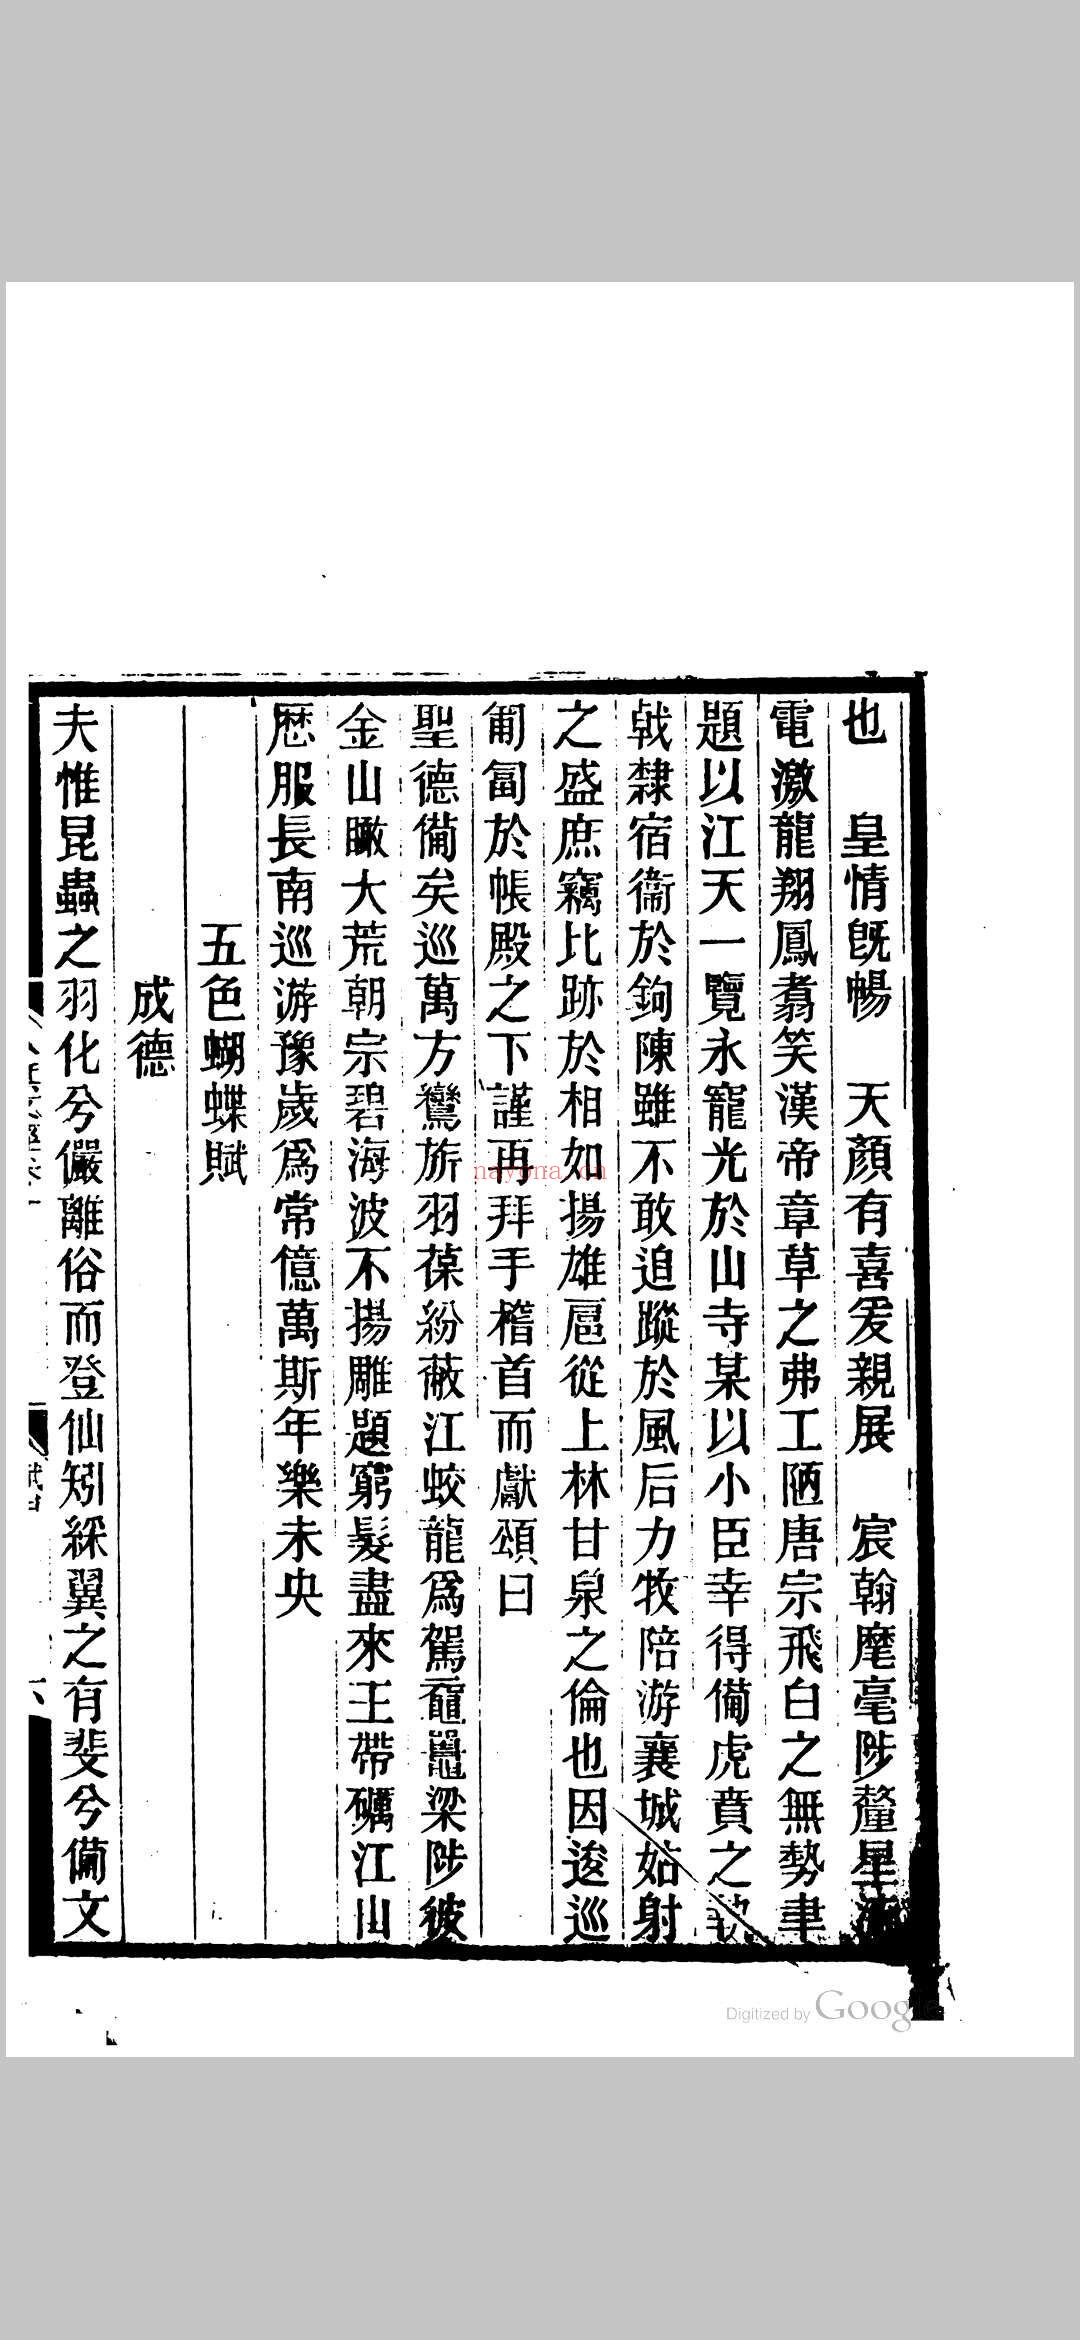 也　皇情旣暢　天顏有喜爰親展　宸翰麾毫陟釐星流
電激龍翔鳳翥笑漢帝章草之弗工陋唐宗飛白之無勢聿
題以江天一覽永寵光於山寺某以小臣幸得備虎賁之
戟隸宿衞於鉤陳雖不敢追蹤於風后力牧陪游襄城姑射
之盛庶竊比跡於相如揚雄扈從上林甘泉之倫也因逡巡
匍匐於帳殿之下謹再拜手稽首而獻頌曰
聖德備矣巡萬方鸞旂羽葆紛蔽江蛟龍爲駕黿鼉梁陟彼
金山瞰大荒朝宗碧海波不揚雕題窮髮盡來王帶礪江山
歷服長南巡游豫歲爲常億萬斯年樂未央
五色蝴蝶賦
成德
夫惟昆蟲之羽化兮儼離俗而登仙矧綵翼之有斐兮備文
nayona.cn
Digitized by Google